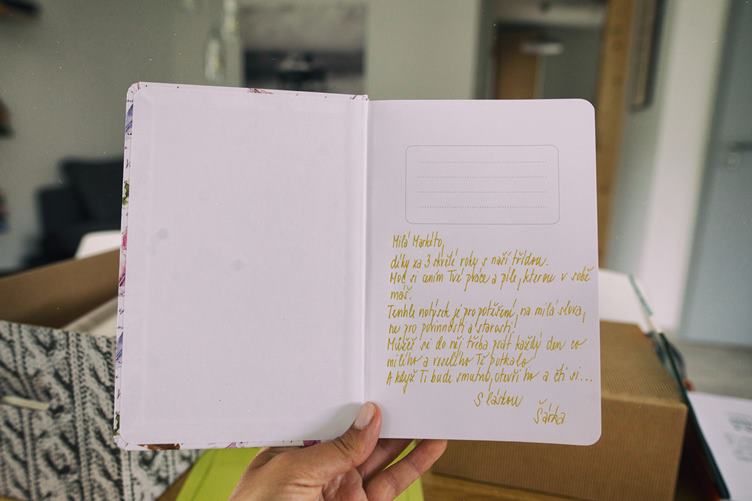 Milá Markéto,
díky za 3 skvělé roky s naší třídou.
Moc si cením Tvé práce a píle, kterou v sobě
máš.
Tenhle notýsek je pro potěšení, na milá slova,
ne pro povinnosti a starosti!
Můžeš si do něj třeba psát každý den co
milého a veselého Tě potkalo.
A když Ti bude smutno, otevři ho a čti si...
S láskou
Šárka